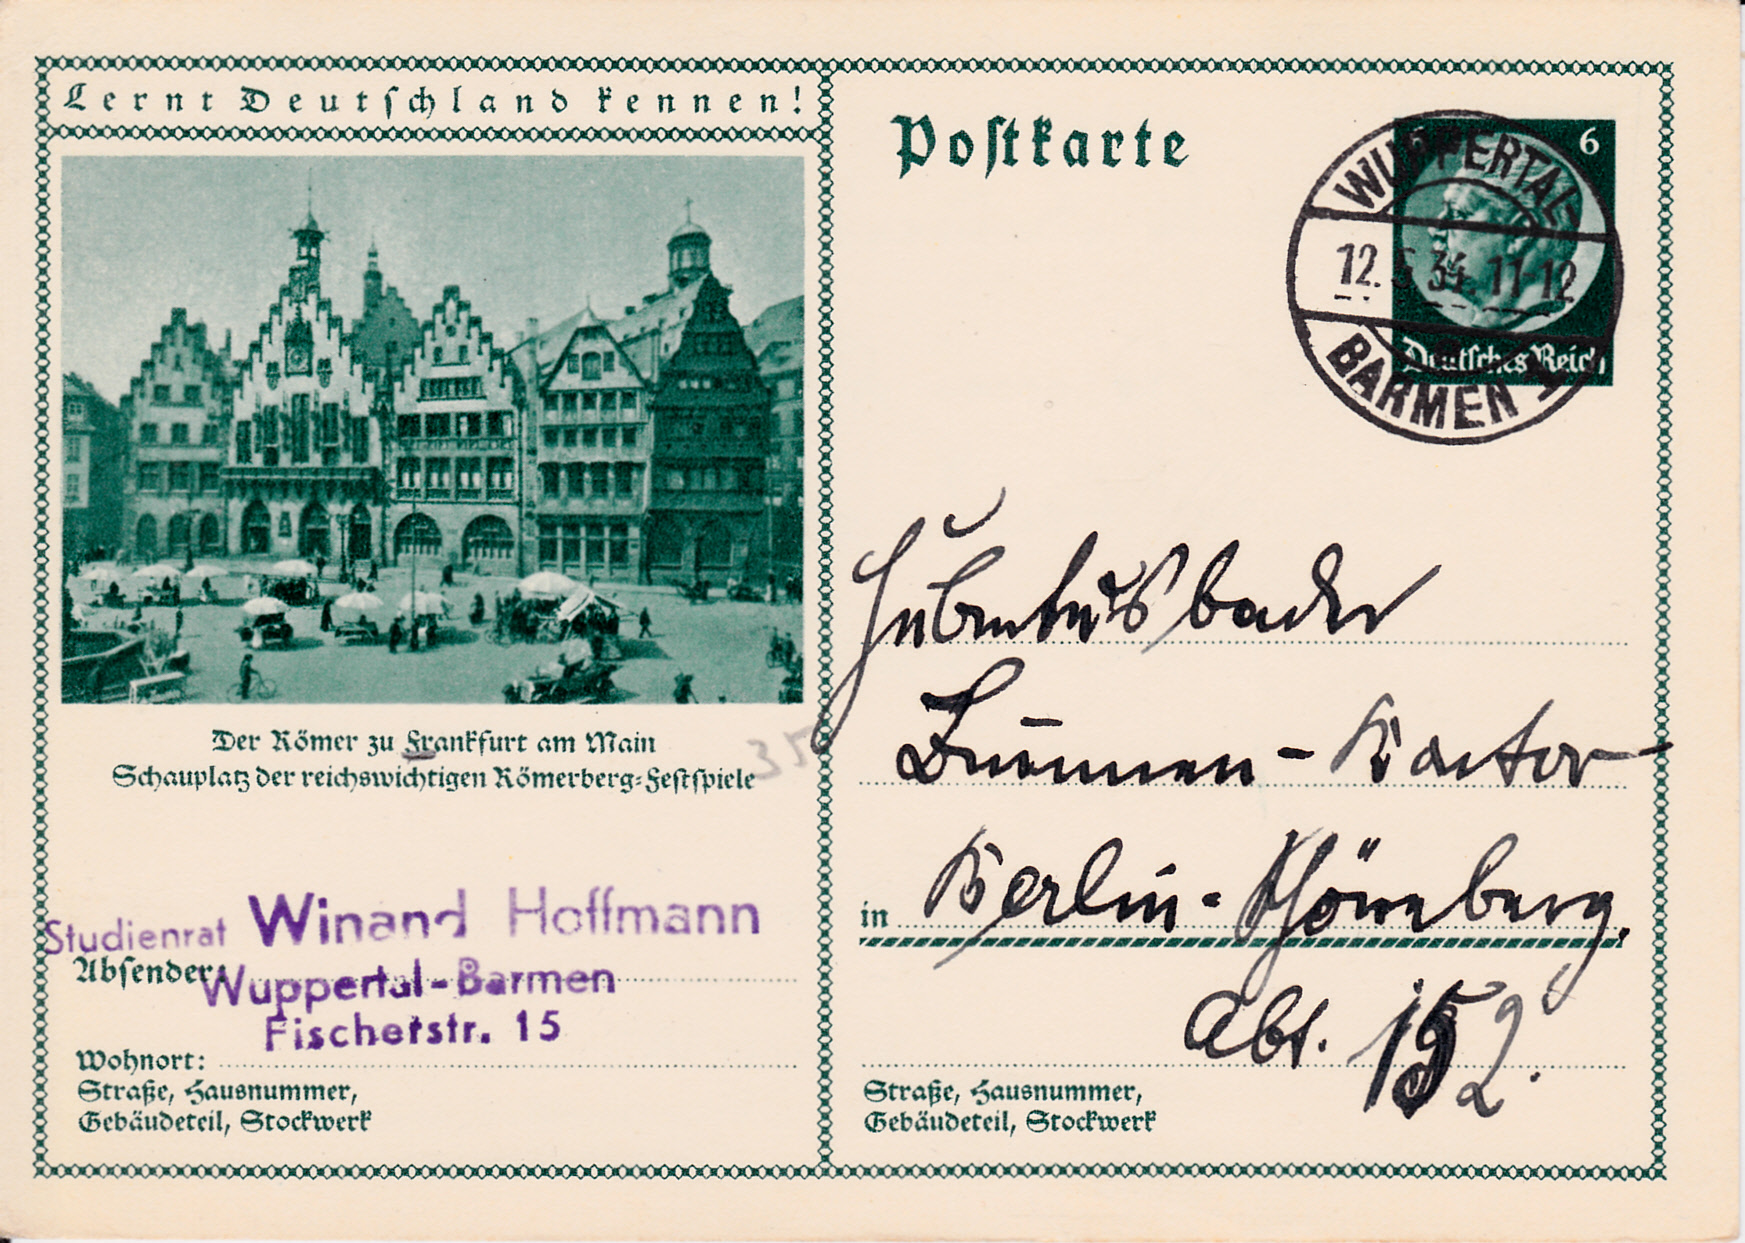 Lernt Deutschland kennen!
Der Römer zu Frankfurt am Main
Schauplatz der reichswichtigen Römerberg-Festspiele
35
Studienrat Winand Hoffmann
Absender:
Wuppertal-Barmen
Fischerstr. 15
Wohnort:
Straße, Hausnummer,
Gebäudeteil, Stockwerk
Postkarte
6 6
Deutsches Reich
WUPPERTAL-
12.5.34. 11-12
BARMEN 1
Hubertusbader
Brunnen-Kontor
in Berlin-Schöneberg.
Abt. 152.
Straße, Hausnummer,
Gebäudeteil, Stockwerk